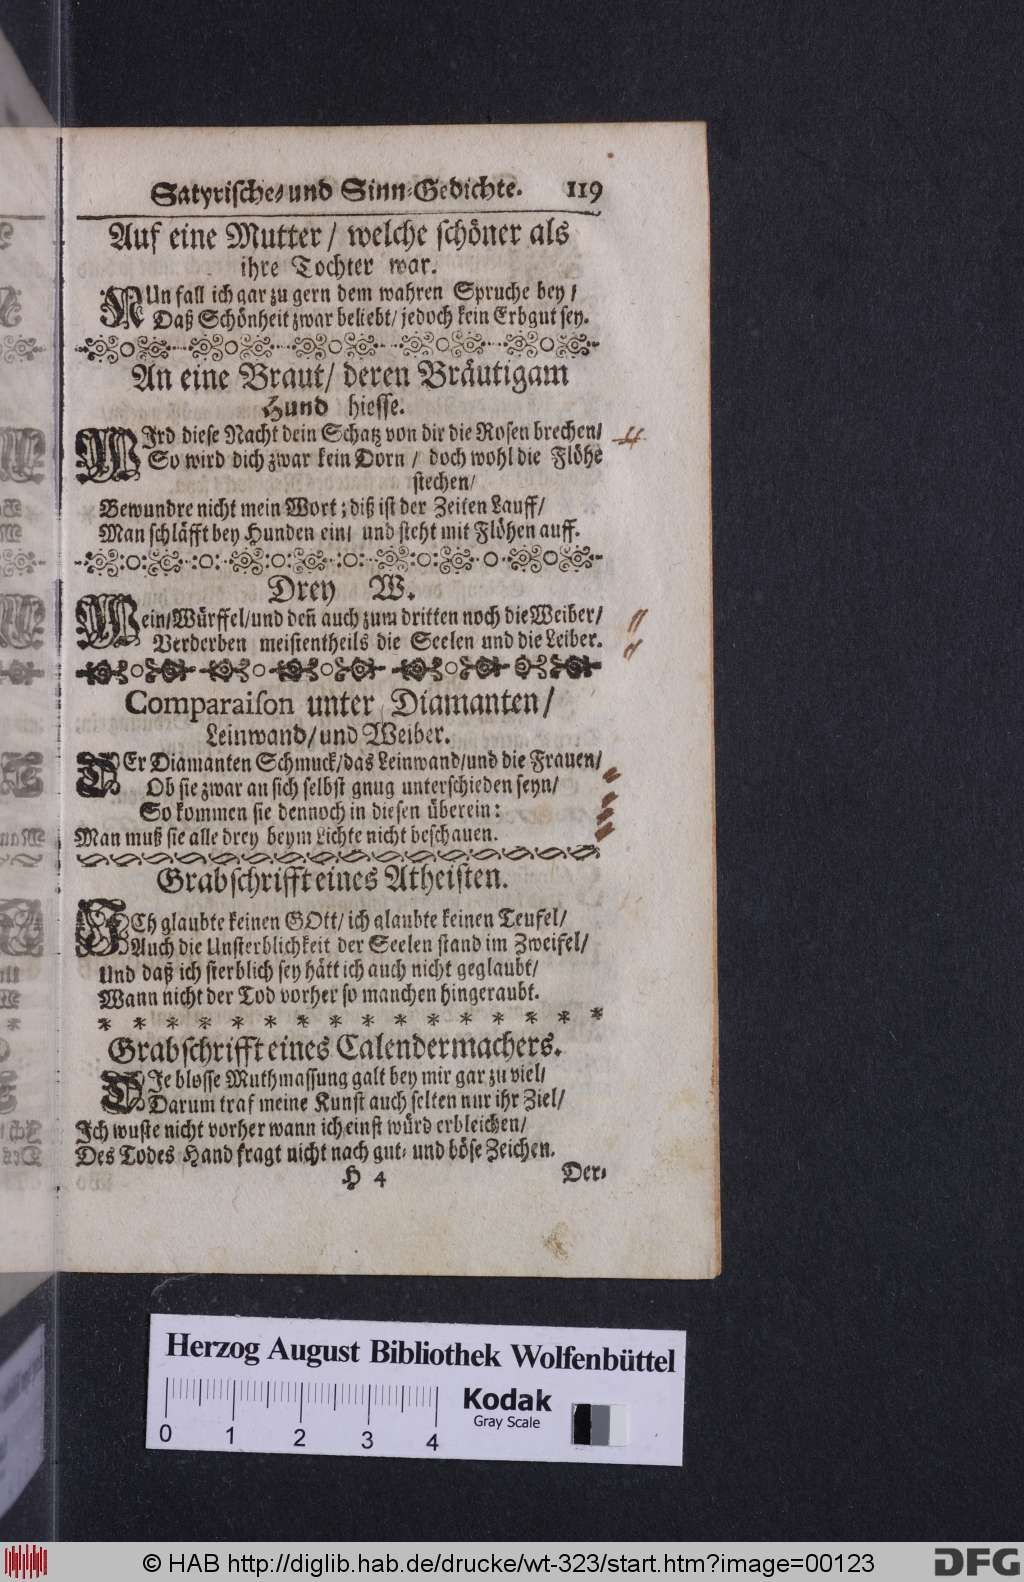 Satyrische- und Sinn-Gedichte. 119
Auf eine Mutter / welche schöner als
ihre Tochter war.
NUn fall ich gar zu gern dem wahren Spruche bey /
Daß Schönheit zwar beliebt / jedoch kein Erbgut sey.
An eine Braut / deren Bräutigam
Hund hiesse.
WIrd diese Nacht dein Schatz von dir die Rosen brechen /
So wird dich zwar kein Dorn / doch wohl die Flöhe
stechen /
Bewundre nicht mein Wort ; diß ist der Zeiten Lauff /
Man schläfft bey Hunden ein / und steht mit Flöhen auff.
Drey W.
Wein / Würffel / und deñ auch zum dritten noch die Weiber /
Verderben meistentheils die Seelen und die Leiber.
Comparaison unter Diamanten /
Leinwand / und Weiber.
DEr Diamanten Schmuck / das Leinwand / und die Frauen /
Ob sie zwar an sich selbst gnug unterschieden seyn /
So kommen sie dennoch in diesen überein :
Man muß sie alle drey beym Lichte nicht beschauen.
Grabschrifft eines Atheisten.
ICh glaubte keinen GOtt / ich glaubte keinen Teufel /
Auch die Unsterblichkeit der Seelen stand im Zweifel /
Und daß ich sterblich sey hätt ich auch nicht geglaubt /
Wann nicht der Tod vorher so manchen hingeraubt.
* * * * * * * * * * * * * * * *
Grabschrifft eines Calendermachers.
DIe blosse Muthmassung galt bey mir gar zu viel /
Darum traf meine Kunst auch selten nur ihr Ziel /
Ich wuste nicht vorher wann ich einst würd erbleichen /
Des Todes Hand fragt nicht nach gut- und böse Zeichen.
H 4 Der-
Herzog August Bibliothek Wolfenbüttel
Kodak
Gray Scale
0 1 2 3 4
© HAB http://diglib.hab.de/drucke/wt-323/start.htm?image=00123
DFG